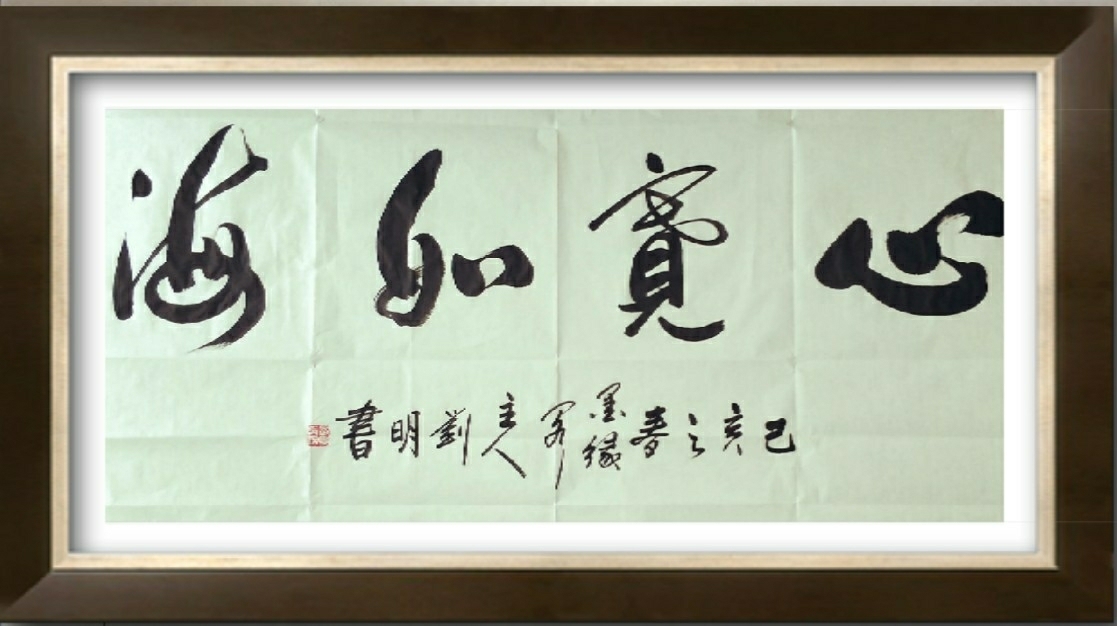 心寬如海
己亥之春墨緣主人劉明書